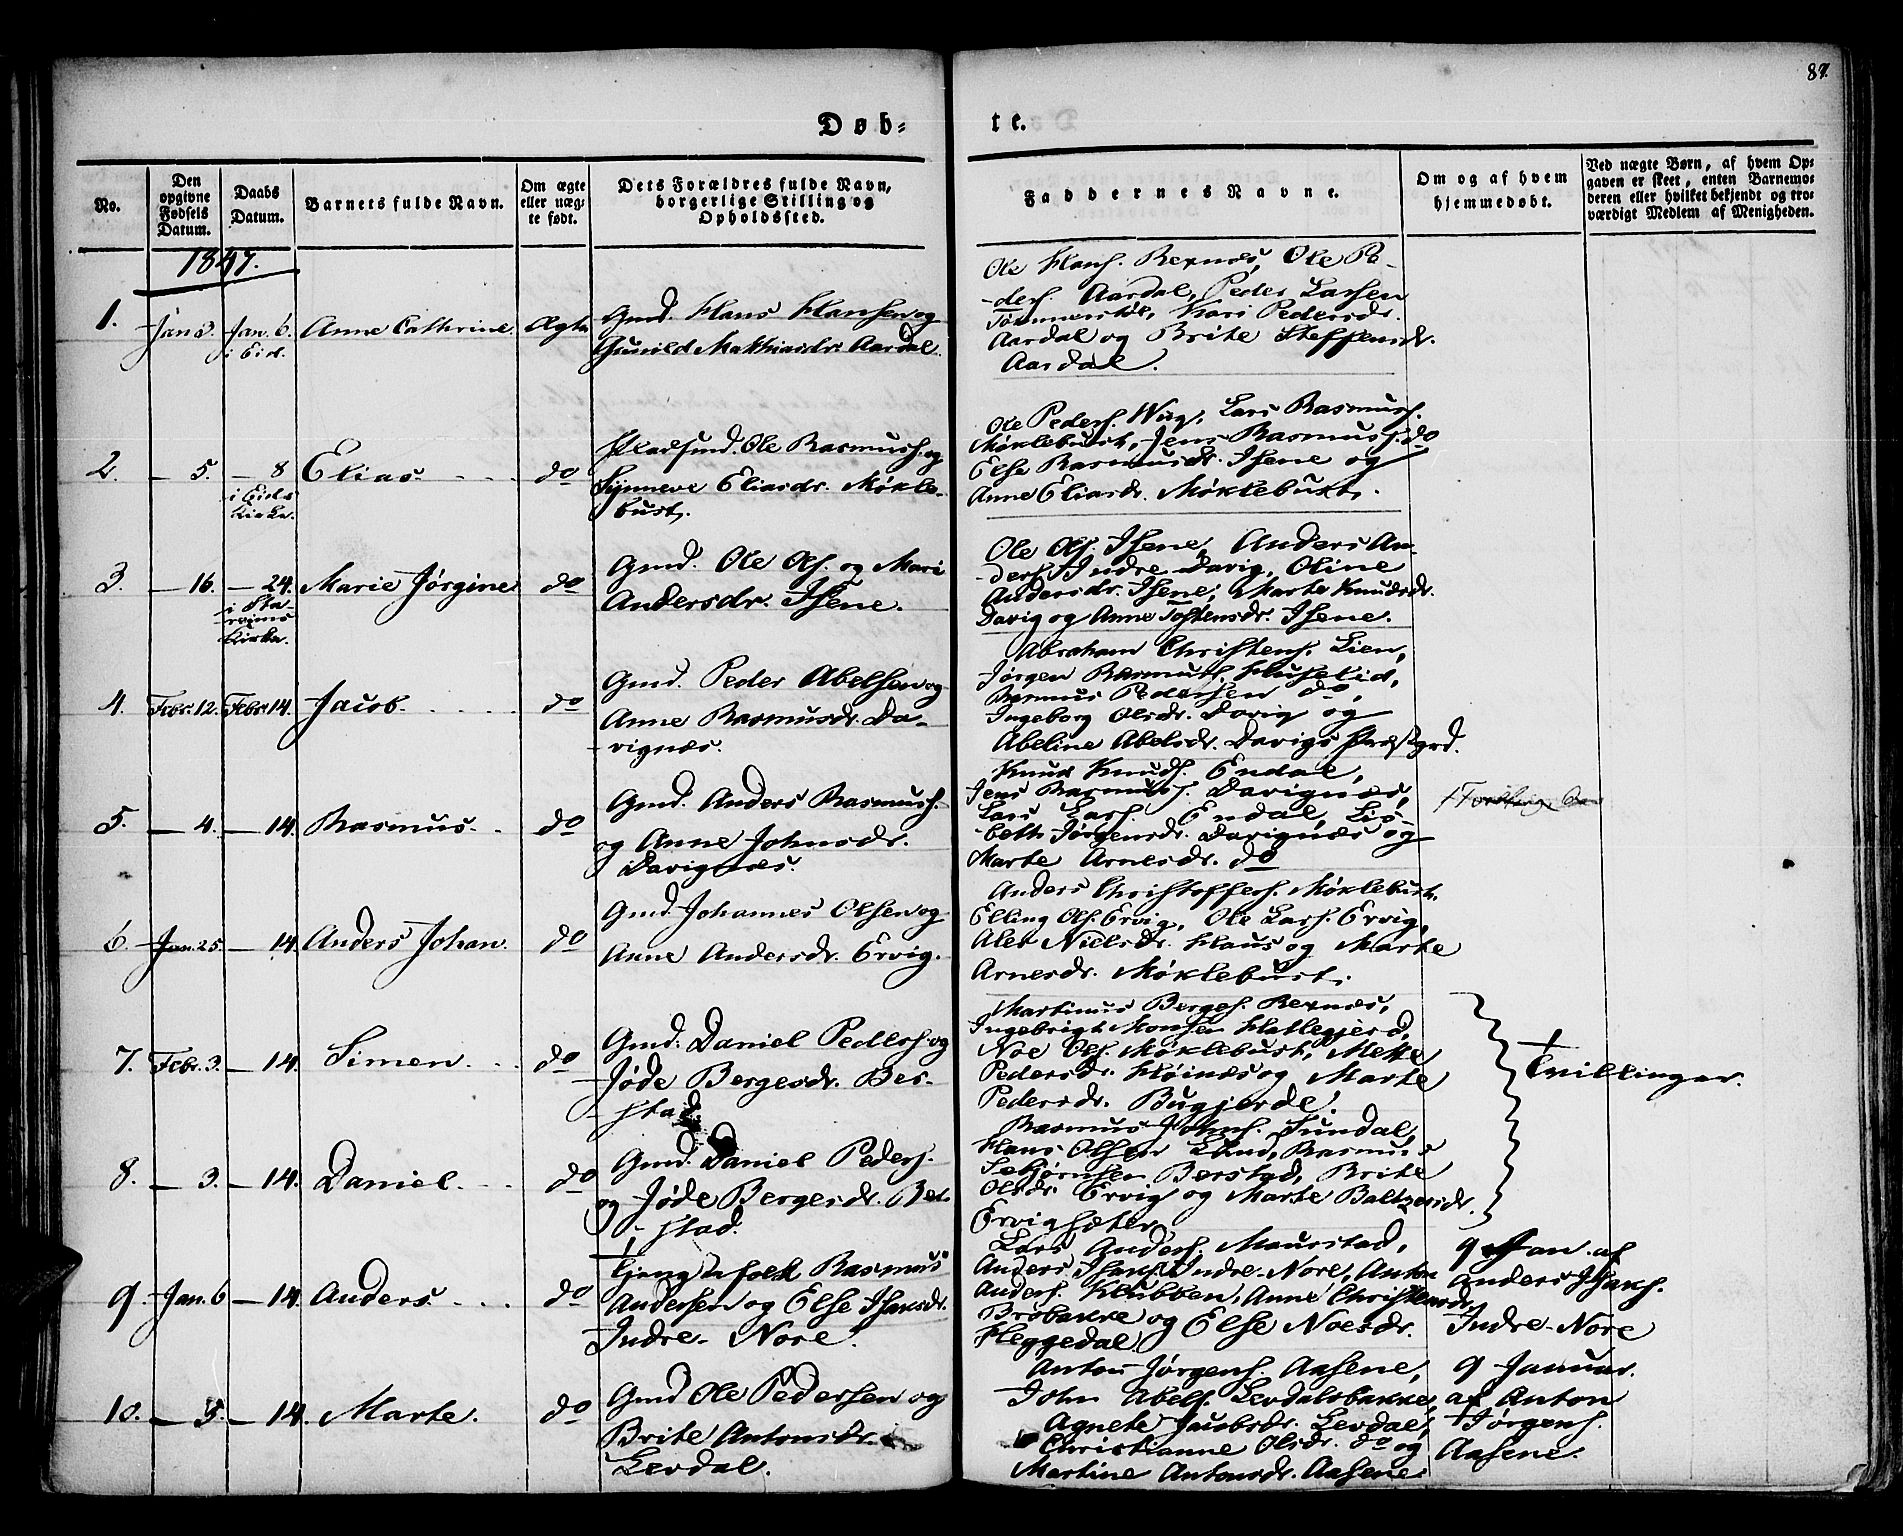 87.
Døb-
te.
No.
Den opgivne Fødsels Datum.
Daabs Datum.
Barnets fulde Navn.
Om ægte eller uægte født.
Dets Forældres fulde Navn, borgerlige Stilling og Opholdssted.
Faddernes Navne.
Om og af hvem hjemmedøbt.
Ved uægte Børn, af hvem Opgaven er skeet, enten Barnemoderen eller hvilket bekjendt og troværdigt Medlem af Menigheden.
1847.
1.
Jan. 6.
i Eid.
Anne Cathrine
Ægte
Gmd. Hans Hansen og
Gunild Mathiasdr. Aardal.
Ole Hans. Rexnæs, Ole Pe-
ders. Aardal, Peder Larsen
Kari Pedersdr.
Aardal og Brite Steffensdr.
Aardal.
2.
— 5.
— 8
i Eids
Kirke.
Elias.
do
Ole Rasmuss. og
Synneve Eliasdr. Møkle-
bust.
Ole Peders. Lars Rasmuss.
Møklebust, Jens Rasmuss. do
Else Rasmusdr. Isene og
Anne Eliasdr. Møklebust.
3.
— 16.
— 24.
i Sta-
Kirke.
Marie Jørgine
do
Gmd. Ole Ols. og Mari
Andersdr. Isene.
Ole Ols. Isene, Anders An-
ders. Indre Davig, Oline
Andersdr. Isene, Marte Knudsdr.
Davig og Anne Tostensdr. Isene.
4.
Febr. 12.
Febr. 14.
Jacob.
do
Gmd. Peder Abelsen og
Anne Rasmusdr. Da-
vignæs.
Abraham Christens. Lien,
Jørgen Rasmuss. Huselid,
Rasmus Pedersen do,
Ingeborg Olsdr. Davig og
Abeline Abelsdr. Davigs Præstgrd.
5.
— 4.
— 14.
Rasmus.
do
Gmd. Anders Rasmuss.
og Anne Johnsdr.
Davignæs.
Knud Knuds. Endal,
Jens Rasmuss. Davignæs,
Lars Lars. Endal, Lis-
beth Jørgensdr. Davignæs og
Marte Arnesdr. do
6.
Jan. 25.
— 14.
Anders Johan.
do
Gmd. Johannes Olsen og
Anne Andersdr. Ervig.
Anders Christoffers. Møklebust.
Elling Ols. Ervig, Ole Lars. Ervig,
Alet Nielsdr. Haus og Marte
Arnesdr. Møklebust.
7.
Febr. 3.
— 14.
Simen
do
Gmd. Daniel Peders. og
Jøde Bergesdr. Ber-
stad.
Martinus Berges. Rexnæs,
Ingebrigt Monsen Hatlegjerd,
Noe Ols. Møklebust, Mette
Pedersdr. Høinæs og Marte
Pedersdr. Bugjerde.
Tvillinger.
8.
— 3.
— 14.
Daniel.
do
Gmd. Daniel Peders.
og Jøde Bergesdr. Ber-
stad.
Rasmus Johns. Sundal,
Hans Olsen Lund, Rasmus
Berstad, Brite
Olsdr. Ervig og Marte Baltzersdr.
Ervigsæter.
9.
Jan. 6
— 14.
Anders.
do
Tjenestefolk Rasmus
Andersen og Else Isaksdr.
Indre-Nore.
Lars Anders. Maurstad,
Anders Isaks. Indre-Nore, Anton
Anders. Klubben, Anne Christensdr.
Brobakke og Else Noesdr.
Heggedal.
9 Jan. af
Anders Isaks.
Indre-Nore
10.
— 5
— 14.
Marte.
do
Gmd Ole Pedersen og
Brite Antonsdr.
Levdal.
Anton Jørgens. Aasene,
John Abels. Levdalsbakke,
Agnete Jacobsdr. Levdal,
Christianne Olsdr. do og
Martine Antonsdr. Aasene.
9 Januar.
af Anton
Jørgens.
Aasene.